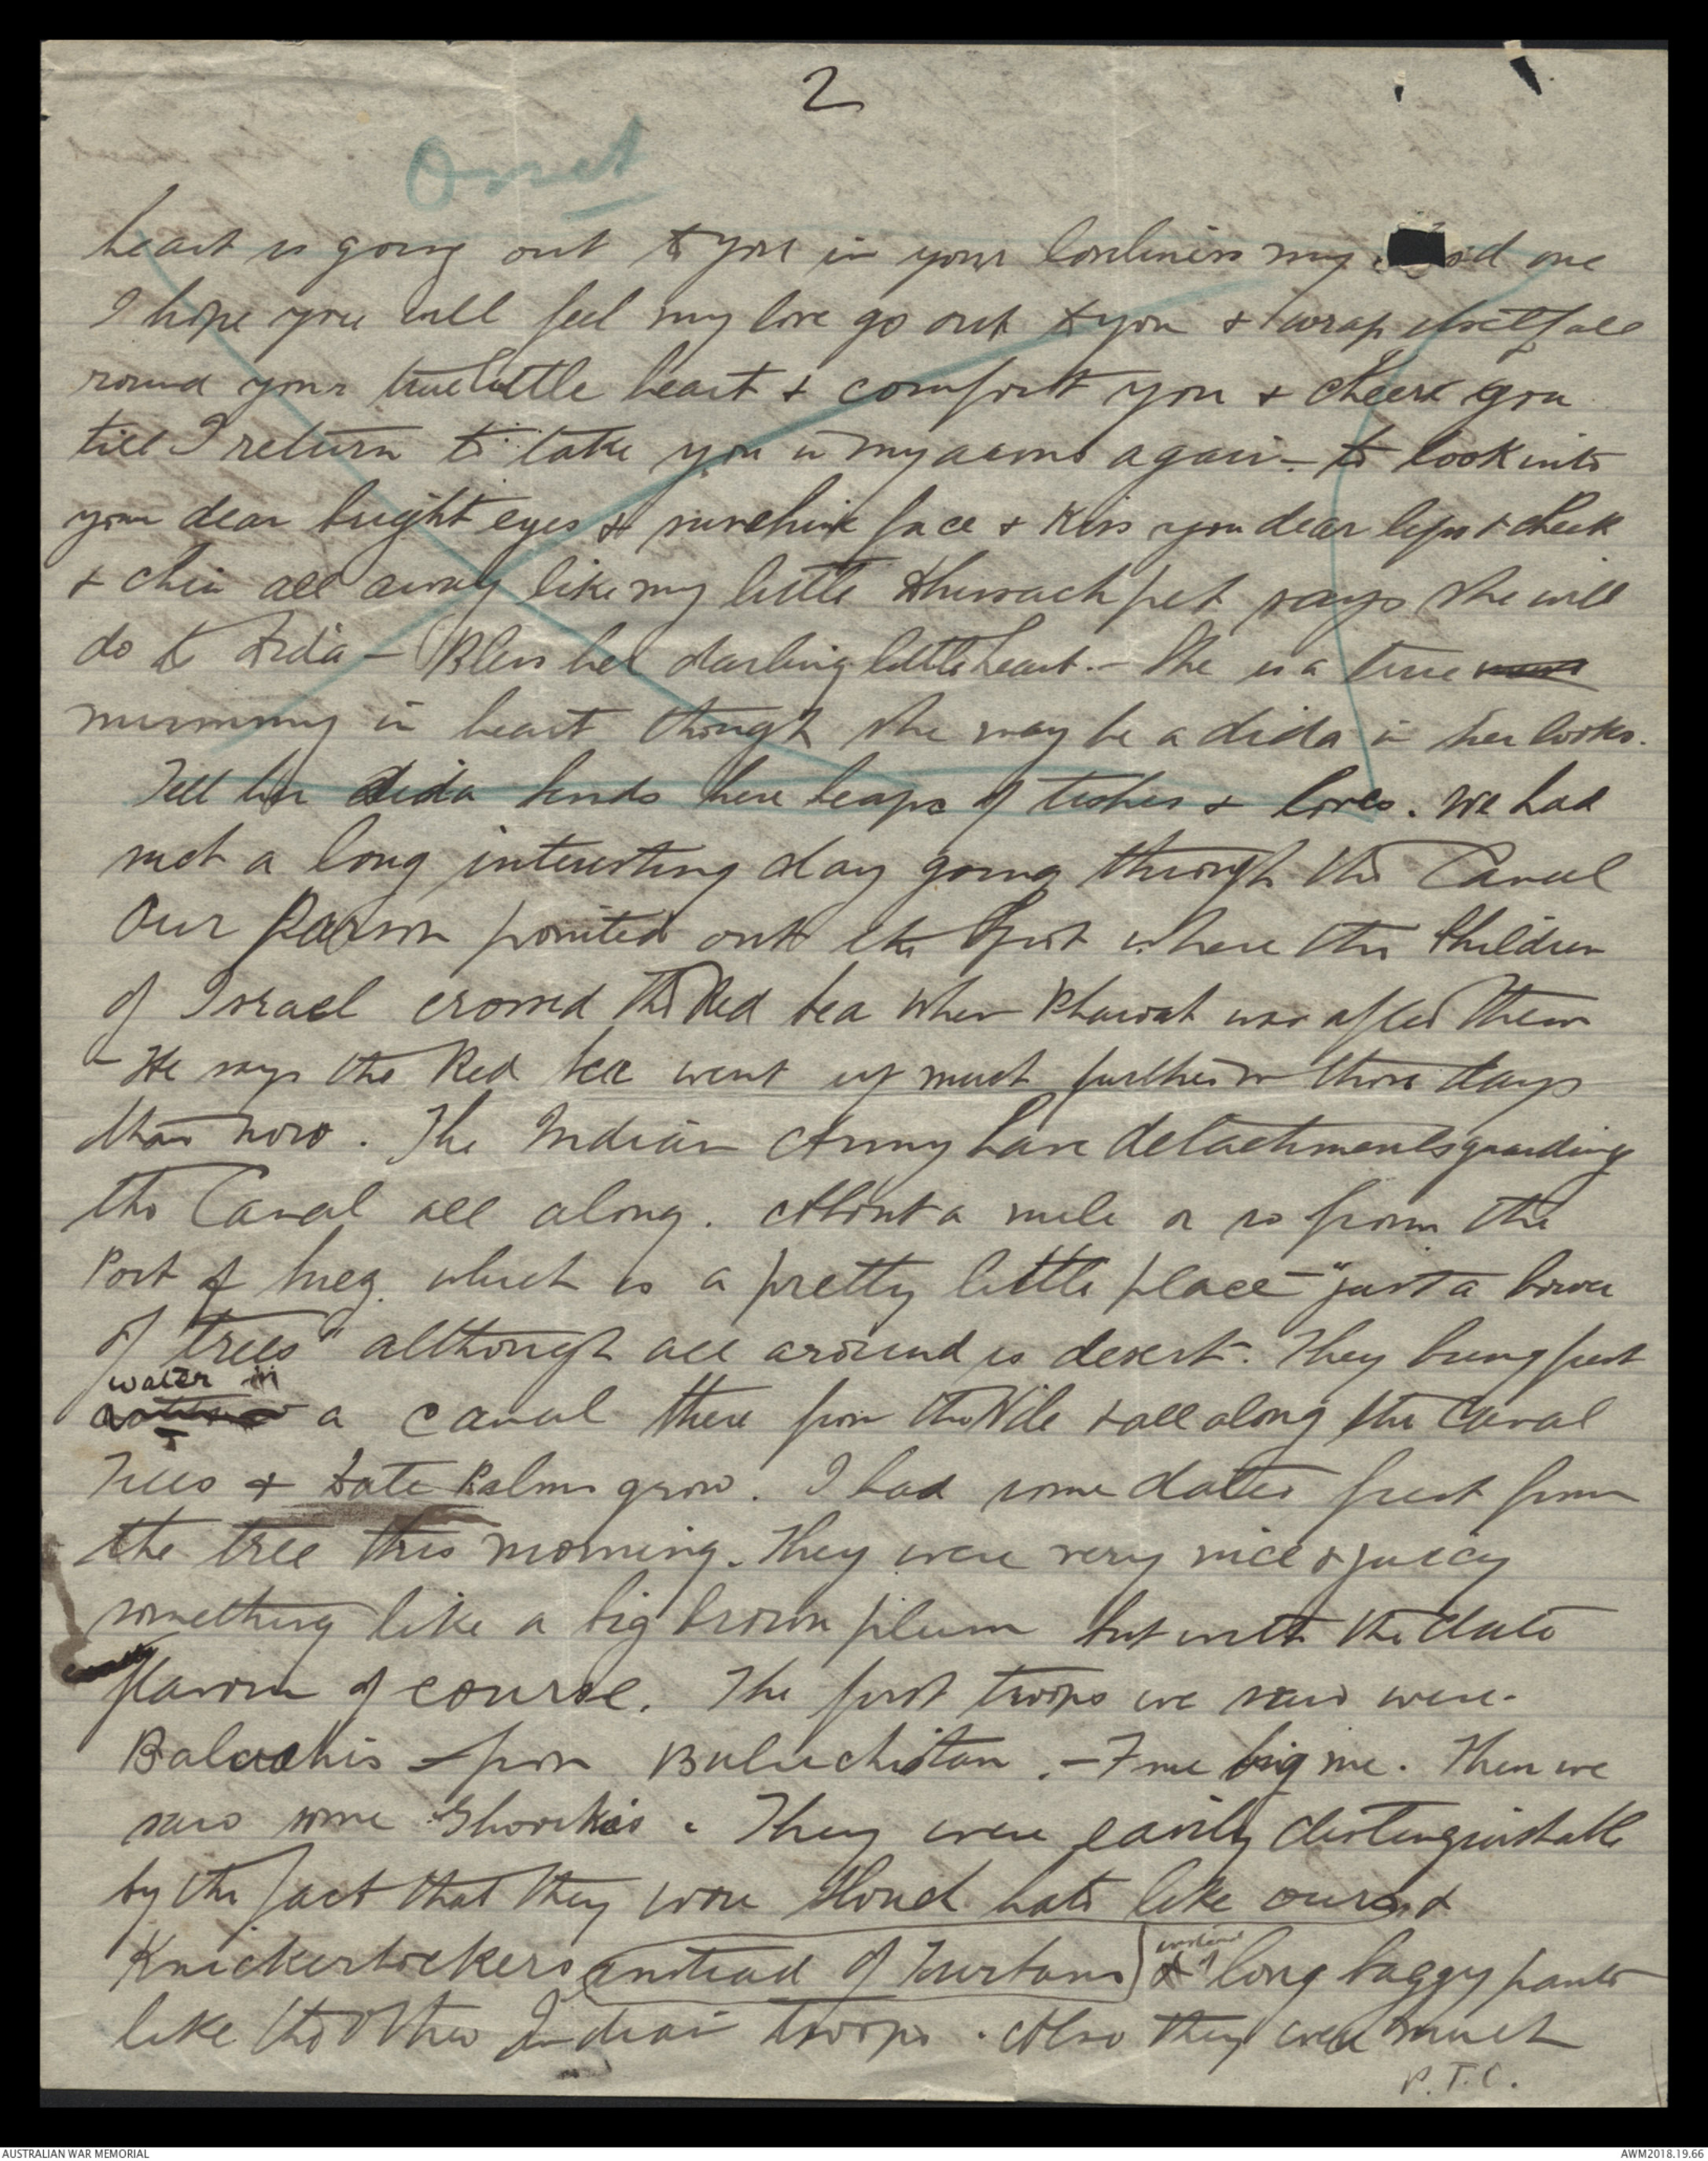 2
Omit
heart is going out to you in your lonliness my one
I hope you will feel my love go out to you & wrap itself all
round your true little heart & comfort you & cheer you
till I return to take you in my arms again - to look into
your dear bright eyes & sunshine face & kiss your dear lips & cheek
& chin all away like my little pet says she will
do to Dida - Bless her darling little heart. - She is a true
mummy in heart though she may be a dida in her looks.
Tell her dida sends her heaps of tishes & loves. We had
such a long interesting day going through the Canal
Our Parson pointed out the spot where the Children
of Israel crossed the Red Sea when Pharoah was after them
- He says the Red Sea went up much further in those days
than now. The Indian Army have detachments guarding
the Canal all along. About a mile or so from the
Port of Suez which is a pretty little place - "just a bower
of trees" although all around is desert. They bring fresh
water in
a canal there from the Nile & all along the Canal
Trees & Date Palms grow. I had some dates fresh from
the tree this morning. They were very nice & juicy
something like a big brown plum but with the date
flavour of course. The first troops we saw were
Baluchis - from Buluchistan. - Fine big men. Then we
saw some Ghoorkas. They were easily distinguishable
by the fact that they wore slouch hats like ours &
Knickerbockers (instead of Turbans) & long baggy pants
like the other Indian troops. Also they were much
P.T.O.
AUSTRALIAN WAR MEMORIAL
AWM2018.19.66